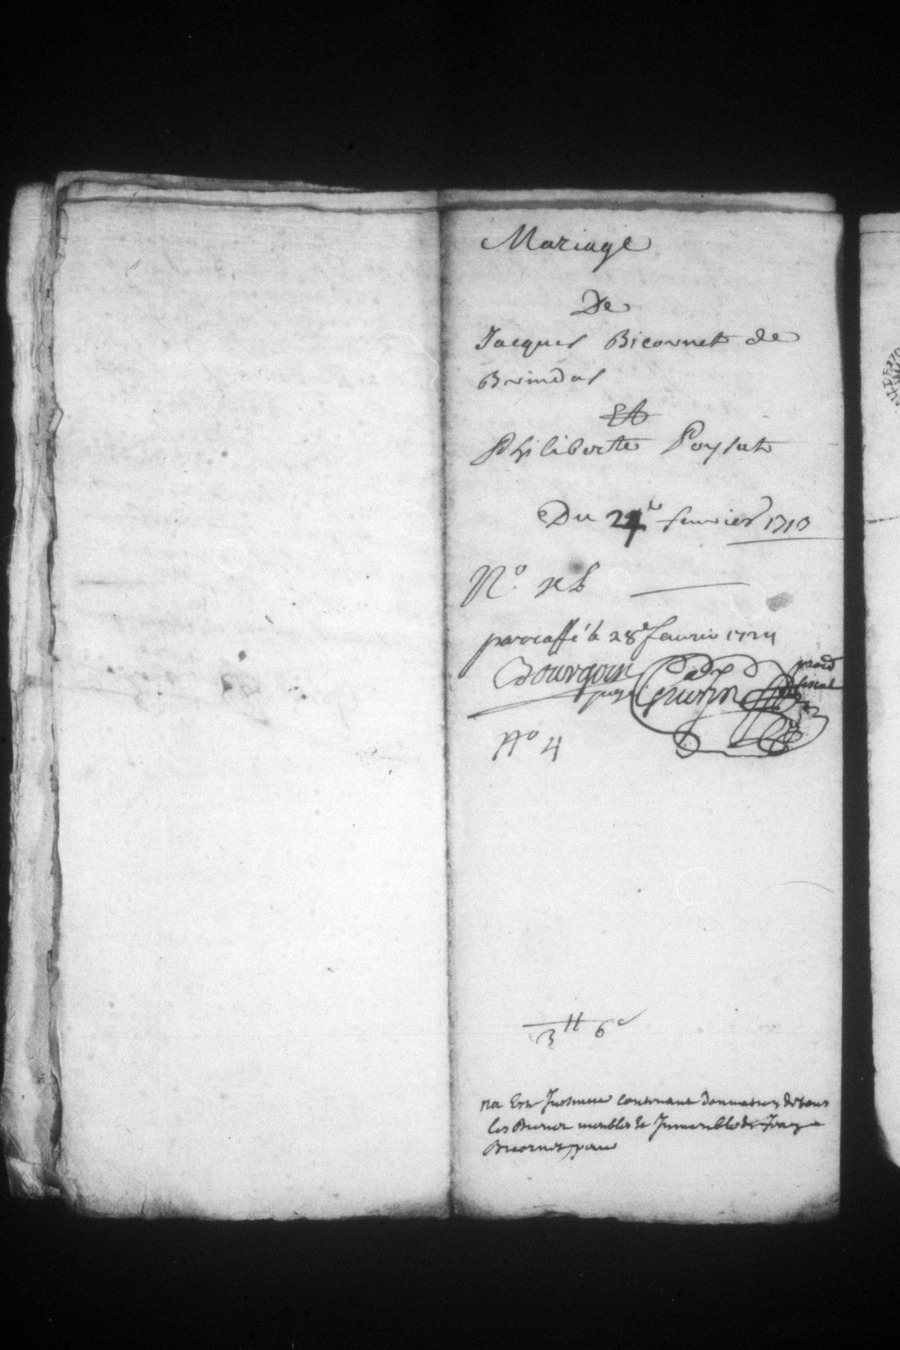 Mariage
De
Jacques Bicornet de
Brindas
Et
Philiberte Poysat
Du 24e fevrier 1713
No.
parcaffé le 28e fevrier 1724
Bourgoin
No 4
3 tt 6
contenant donnation de tous
les Biens meubles et Immeubles de
Bicornet pere